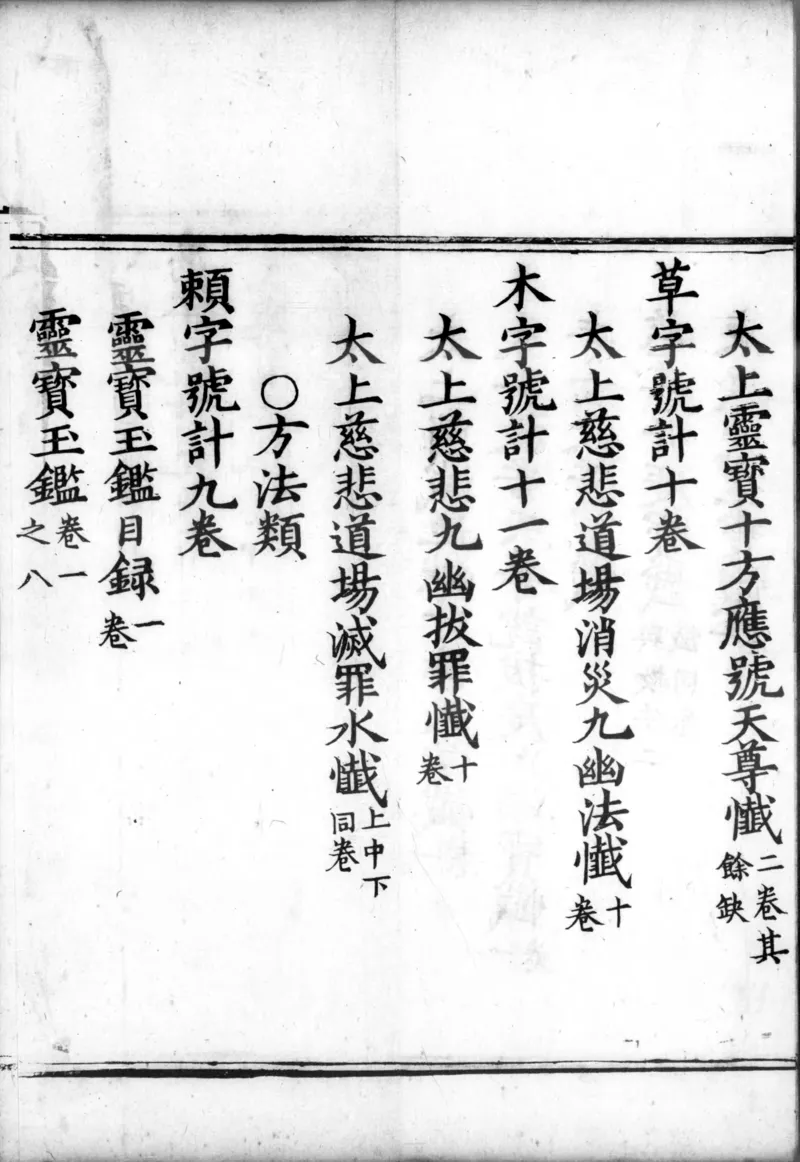 太上靈寶十方應號天尊懴二卷其餘缺
草字號計十卷
太上慈悲道場消災九幽法懴十卷
木字號計十一卷
太上慈悲九幽拔罪懴十卷
太上慈悲道場滅罪水懴上中下同卷
○方法類
頼字號計九卷
靈寶玉鑑目録一卷
靈寶玉鑑卷一之八